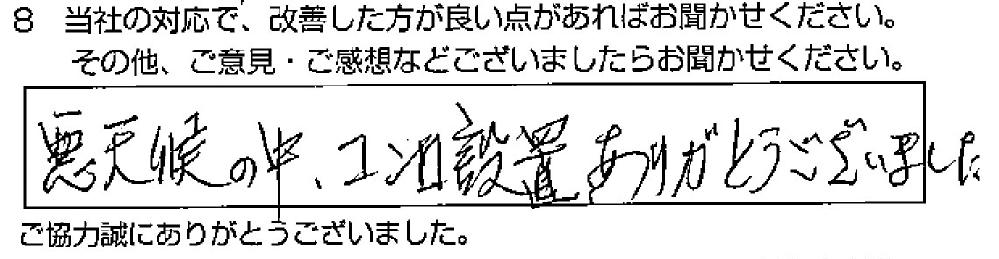 8 当社の対応で、改善した方が良い点があればお聞かせください。
その他、ご意見・ご感想などございましたらお聞かせください。
悪天候の中、設置ありがとうございました
ご協力誠にありがとうございました。